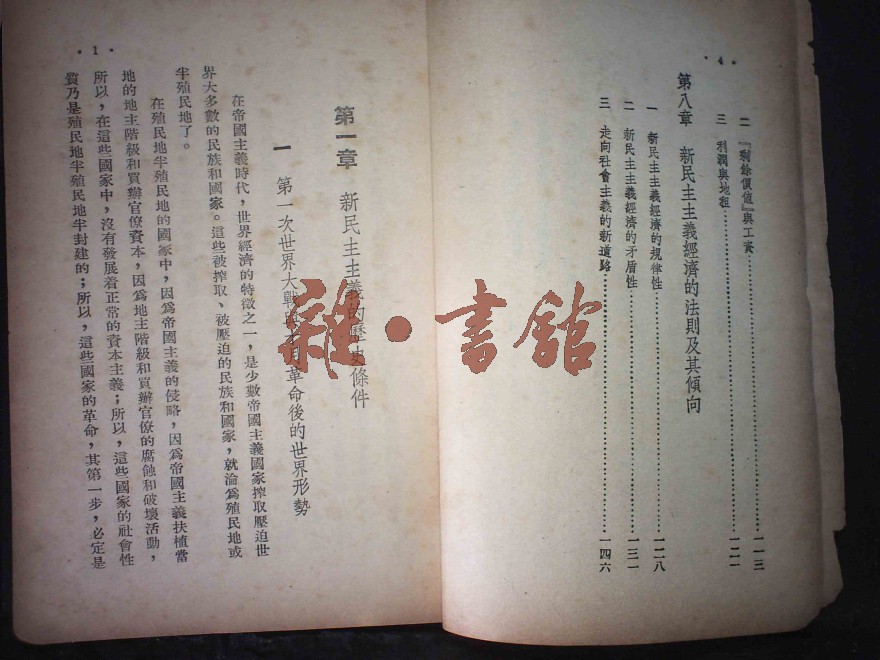 • 4 •
二 『剩餘價值』與工資……一一三
三 利潤與地租……一二一
第八章 新民主主義經濟的法則及其傾向
一 新民主主義經濟的規律性……一二八
二 新民主主義經濟的矛盾性……一三一
三 走向社會主義的新道路……一四六
• 1 •
第一章 新民主主義的歷史條件
一 第一次世界大戰與十月革命後的世界形勢
在帝國主義時代，世界經濟的特徵之一，是少數帝國主義國家搾取壓迫世
界大多數的民族和國家。這些被搾取、被壓迫的民族和國家，就淪爲殖民地或
半殖民地了。
在殖民地半殖民地的國家中，因爲帝國主義的侵略，因爲帝國主義扶植當
地的地主階級和買辦官僚資本，因爲地主階級和買辦官僚的腐蝕和破壞活動，
所以，在這些國家中，沒有發展着正常的資本主義；所以，這些國家的社會性
質乃是殖民地半殖民地半封建的；所以，這些國家的革命，其第一步，必定是
雜•書館